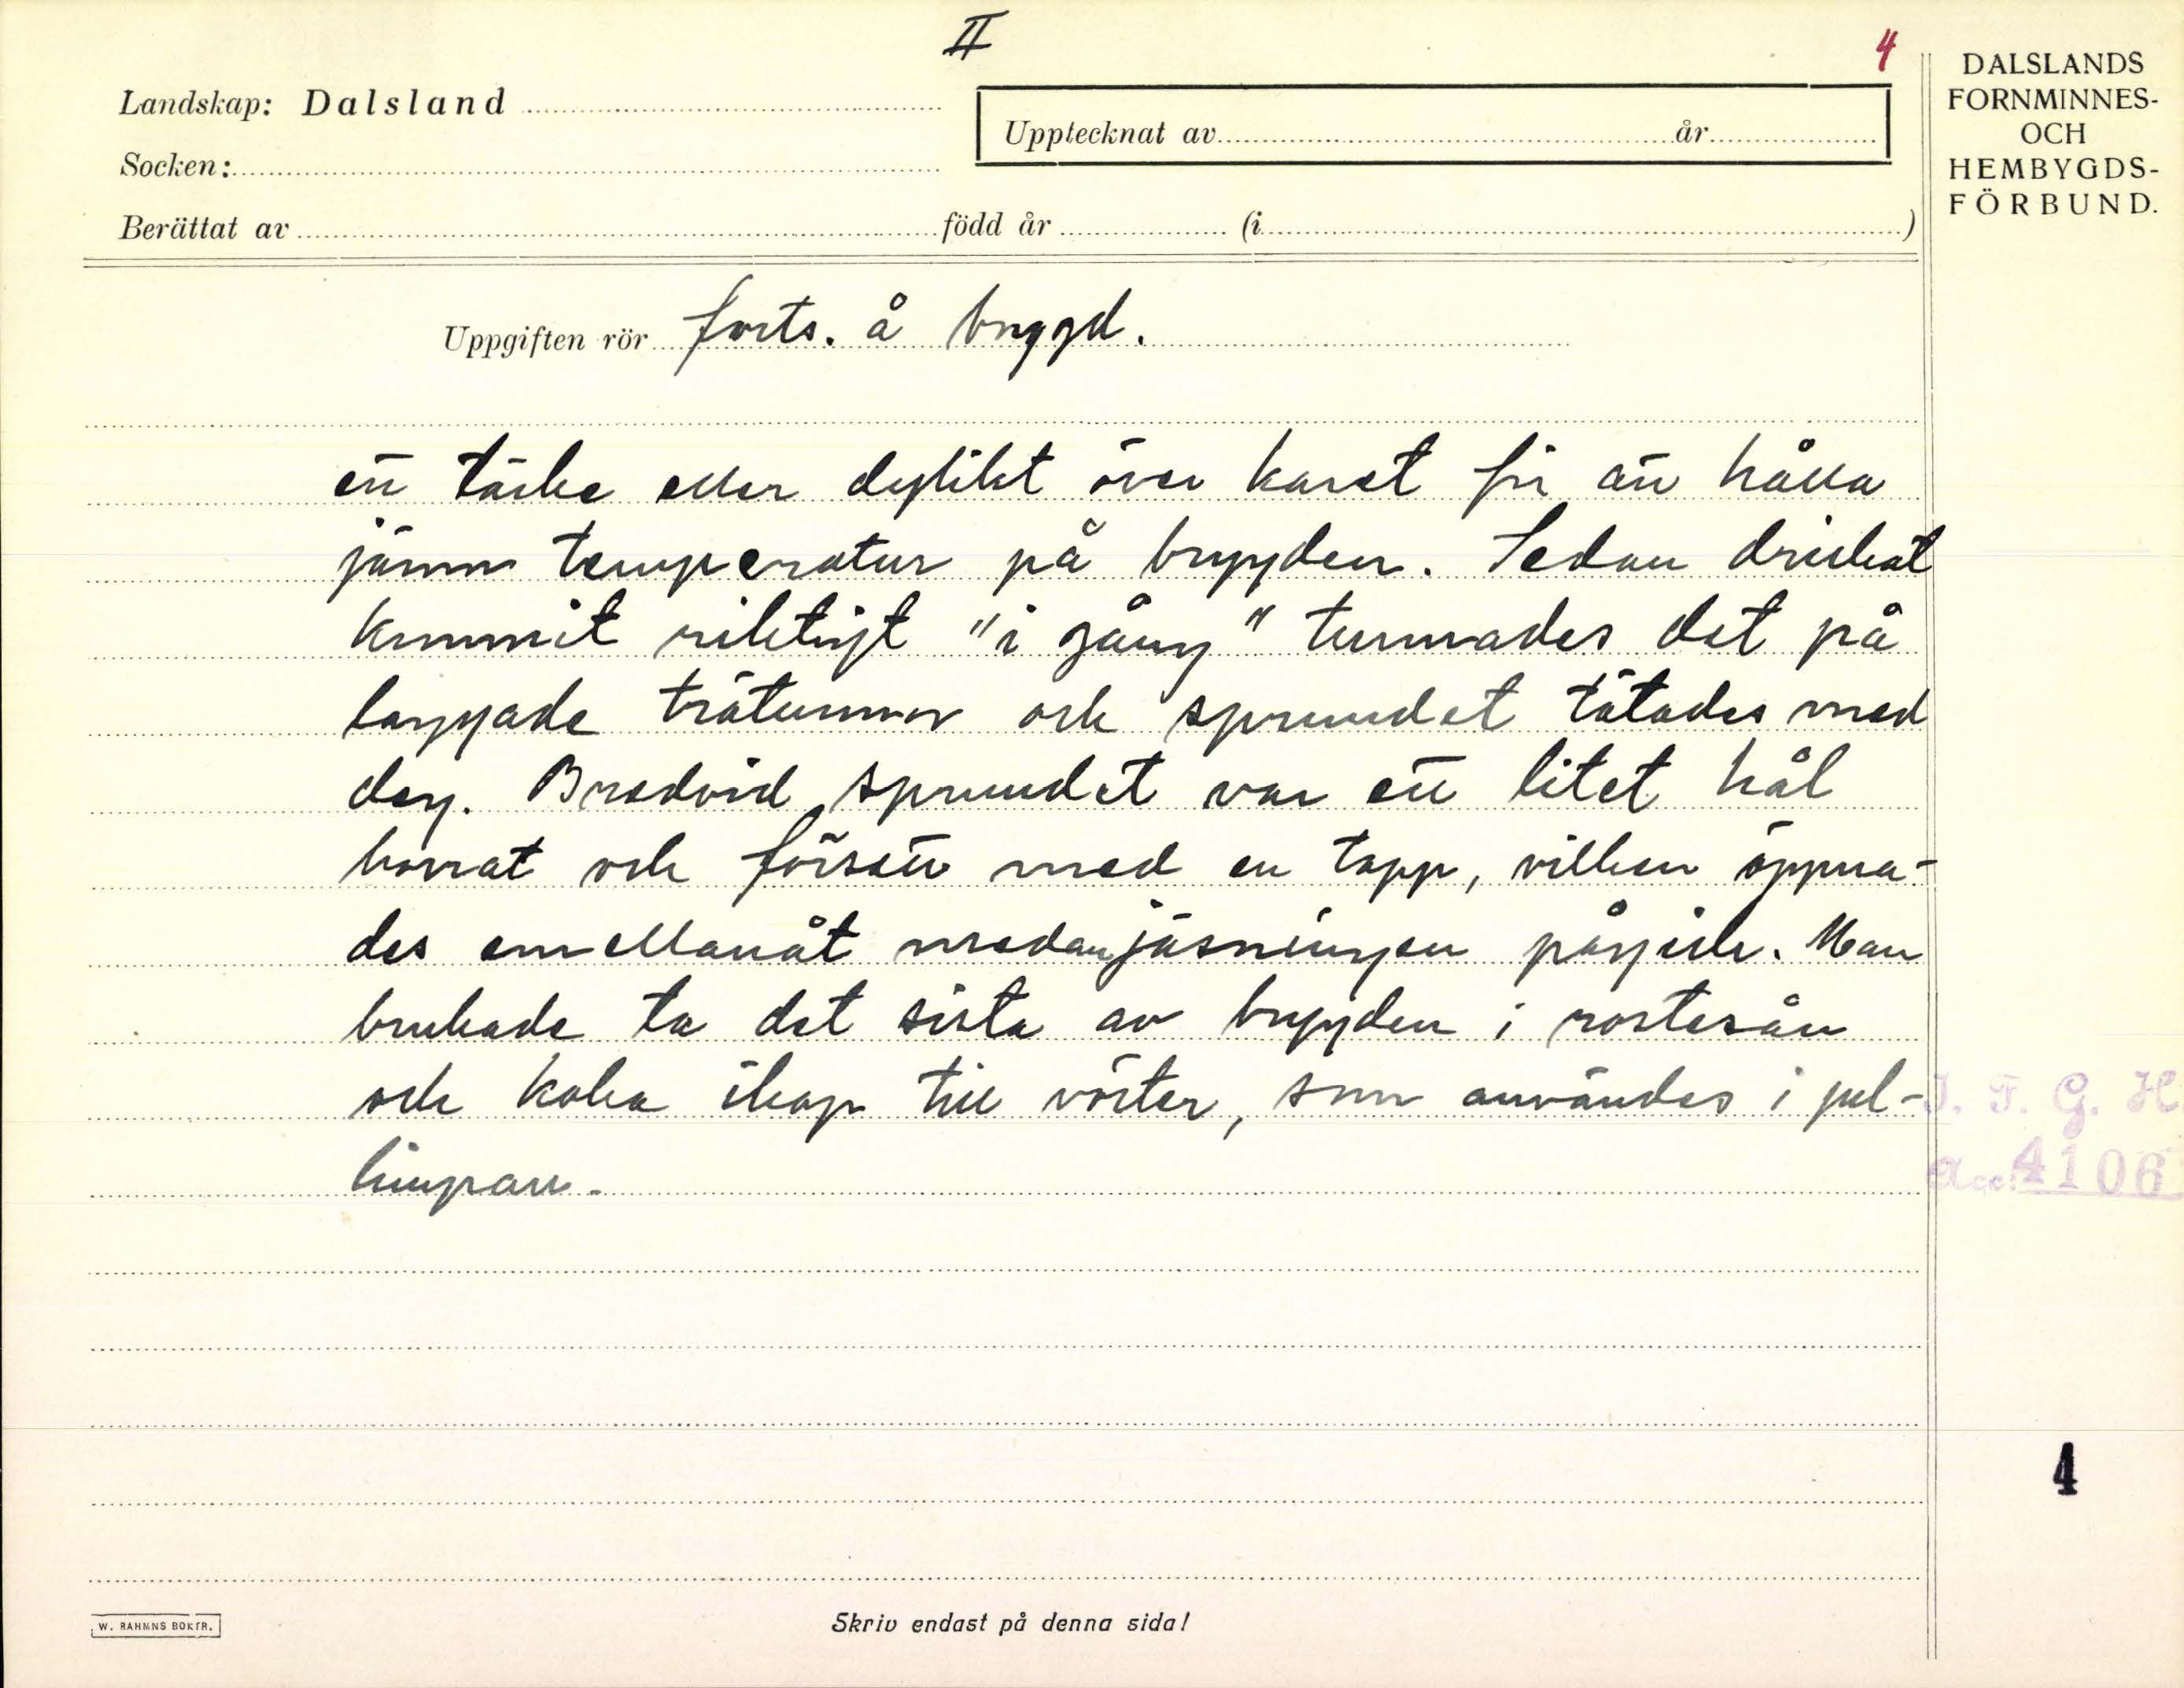 II
4
Landskap: Dalsland
Socken:
Berättat av född år (i )
Upptecknat av år
DALSLANDS
FORNMINNES-
OCH
HEMBYGDS-
FÖRBUND.
Uppgiften rör forts. å brygd.
ett täcke eller dylikt över karet för att hålla
jämn temperatur på bryggden. Sedan drickat
kommit riktigt "i gång" tunnades det på
laggade trätunnor och sprundet tätades med
deg. Bredvid sprundet var ett litet hål
borrat och försett med en tapp, vilken öppna-
des emellanåt medan jäsningen pågick. Man
brukade ta det sista av bryggden i rostesån
och koka ihop till vörter, som användes i jul-
limpan.
I. F. G. H
Acc. 4106
4
W. RAHMNS BOKTR.
Skriv endast på denna sida!